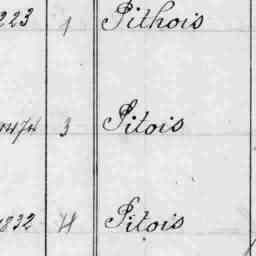 223 1 Pithois
1474 3 Pitois
1832 4 Pitois